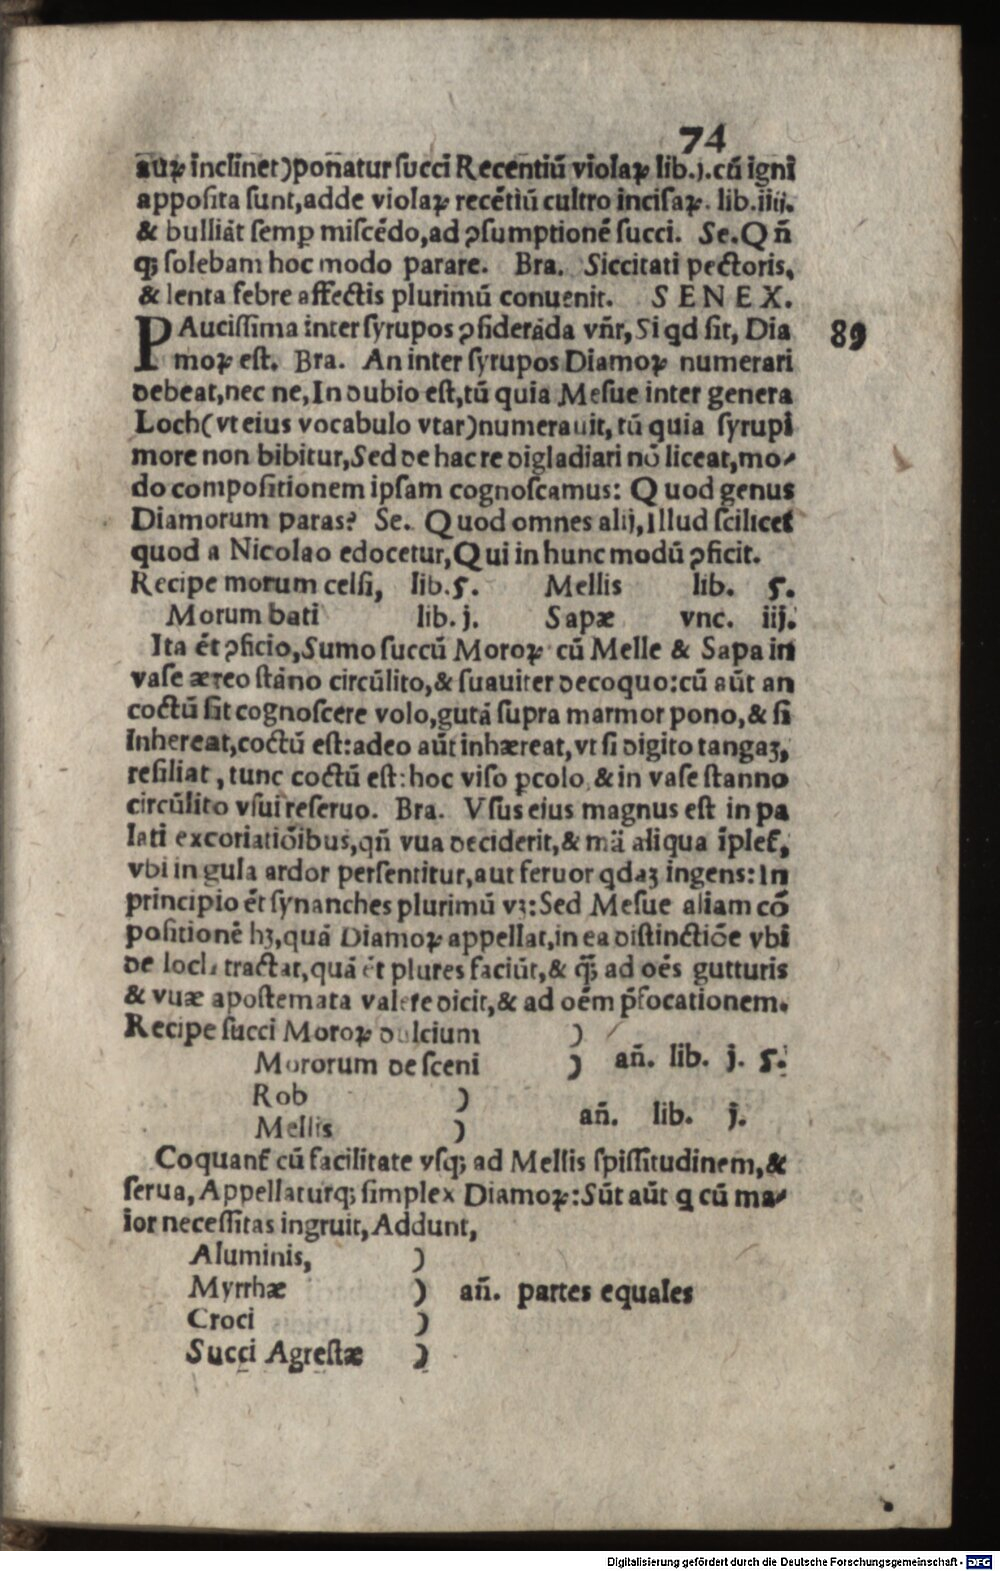 74
auꝝ inclinet)ponatur succi Recentiũ violaꝝ lib.j.cũ igni
apposita sunt,adde violaꝝ recẽtiũ cultro incisaꝝ. lib.iiij.
& bulliãt semꝑ miscẽdo,ad ꝯsumptionẽ succi. Se.Qñ
qꝫ solebam hoc modo parare. Bra. Siccitati pectoris,
& lenta febre affectis plurimũ conuenit. SENEX.
PAucissima inter syrupos ꝯsiderãda vñr,Si qd sit, Dia
moꝝ est. Bra. An inter syrupos Diamoꝝ numerari
debeat,nec ne,In dubio est,tũ quia Mesue inter genera
Loch(vt eius vocabulo vtar)numerauit,tũ quia syrupi
more non bibitur,Sed de hac re digladiari nõ liceat,mo-
do compositionem ipsam cognoscamus: Quod genus
Diamorum paras? Se. Quod omnes alij,Illud scilicet
quod a Nicolao edocetur,Qui in hunc modũ ꝯficit.
89
Recipe morum celsi, lib.ϛ. Mellis lib. ϛ.
Morum bati lib.j. Sapæ vnc. iij.
Ita ẽt ꝯficio,Sumo succũ Moroꝝ cũ Melle & Sapa in
vase æreo stãno circũlito,& suauiter decoquo:cũ aũt an
coctũ sit cognoscere volo,gutã supra marmor pono,& si
Inhereat,coctũ est:adeo aũt inhæreat,vt si digito tangaꝫ,
resiliat,tunc coctũ est:hoc viso ꝑcolo,& in vase stanno
circũlito vsui reseruo. Bra. Vsus eius magnus est in pa
lati excoriatiõibus,qñ vua deciderit,& mã aliqua ĩplet̃,
vbi in gula ardor persentitur,aut feruor qdaꝫ ingens:In
principio ẽt synanches plurimũ vꝫ:Sed Mesue aliam cõ
positionẽ hꝫ,quã Diamoꝝ appellat,in ea distinctiõe vbi
de loch tractat,quã ẽt plures faciũt,& qꝫ̃ ad oẽs gutturis
& vuæ apostemata valere dicit,& ad oẽm p̃focationem.
Recipe succi Moroꝝ dulcium )
Mororum de sceni ) añ. lib. j. ϛ.
Rob )
Mellis ) añ. lib. j.
Coquant̃ cũ facilitate vsqꝫ ad Mellis spissitudinem,&
serua,Appellaturqꝫ simplex Diamoꝝ:Sũt aũt q cũ ma-
ior necessitas ingruit,Addunt,
Aluminis, )
Myrrhæ ) añ. partes equales
Croci )
Succi Agrestæ )
Digitalisierung gefördert durch die Deutsche Forschungsgemeinschaft - DFG